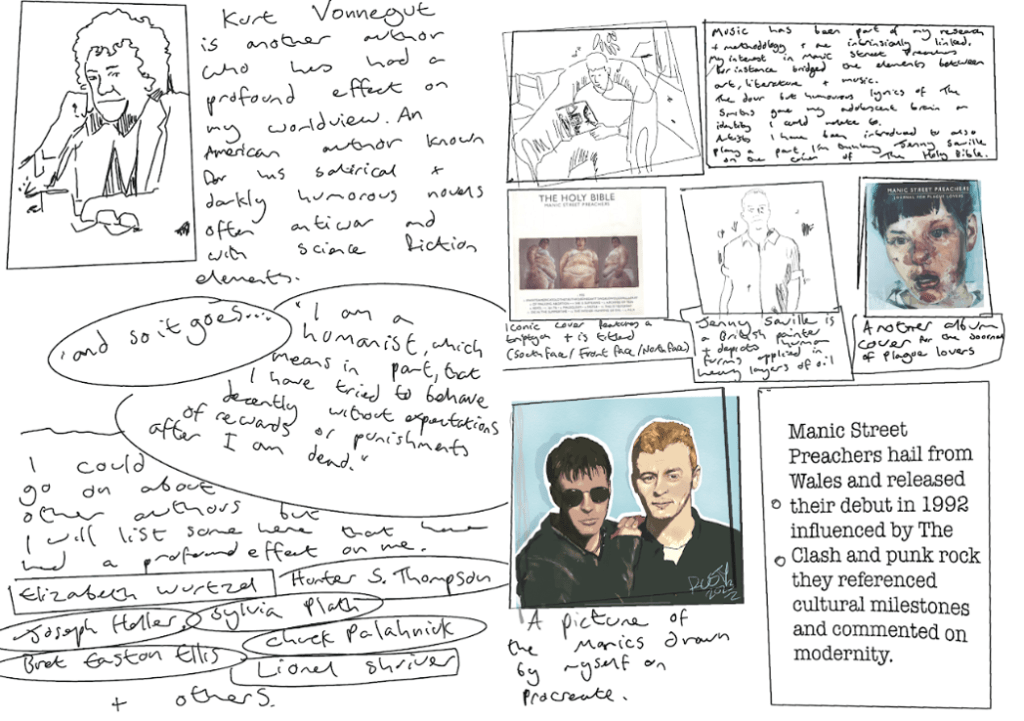 Kurt Vonnegut
is another author
who has had a
profound effect on
my worldview. An
American author known
for his satirical +
darkly humorous novels
often antiwar and
with science fiction
elements.
'and so it goes...
"I am a
humanist, which
means in part, that
I have tried to behave
decently without expectations
of rewards or punishments
after I am dead."
I could
go on about
other authors but
I will list some here that have
had a profound effect on me.
Elizabeth Wurtzel
Hunter S. Thompson
Joseph Heller
Sylvia Plath
Chuck Palahnick
Bret Easton Ellis
Lionel Shriver
+ others.
Music has been part of my research
+ methodology + are intrinsically linked.
My interest in Manic Street Preachers
for instance bridged the elements between
art, literature + music.
The dour but humourous lyrics of The
Smiths gave my adolescent brain an
identity I could relate to.
Artists I have been introduced to also
play a part, I'm thinking Jenny Saville
on the cover of The Holy Bible.
THE HOLY BIBLE
MANIC STREET PREACHERS
Iconic cover features a
triptych + is titled
(South Face/Front Face/North Face)
Jenny Saville is
a British painter
+ depicts human
forms applied in
heavy layers of oil
MANIC STREET PREACHERS
JOURNAL FOR PLAGUE LOVERS
Another album
cover for the Journal
of Plague lovers
2022
A picture of
the Manics drawn
by myself on
procreate.
Manic Street
Preachers hail from
Wales and released
their debut in 1992
influenced by The
Clash and punk rock
they referenced
cultural milestones
and commented on
modernity.